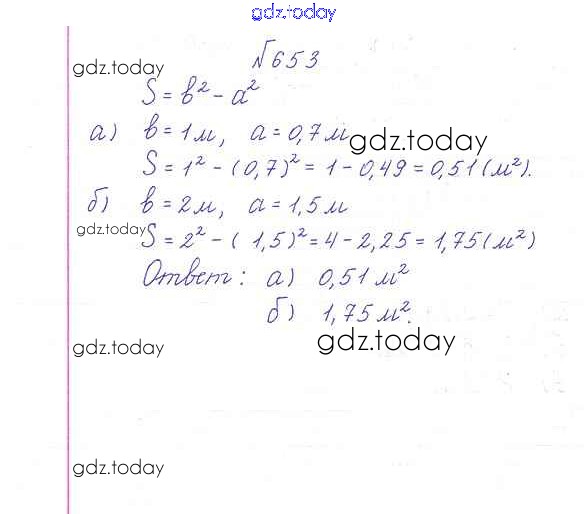 gdz.today
№653
gdz.today
S = b² - a²
а) b = 1 м, a = 0,7 м
gdz.today
S = 1² - (0,7)² = 1 - 0,49 = 0,51 (м²).
б) b = 2 м, a = 1,5 м
gdz.today
S = 2² - (1,5)² = 4 - 2,25 = 1,75 (м²)
Ответ: а) 0,51 м²
б) 1,75 м².
gdz.today
gdz.today
gdz.today